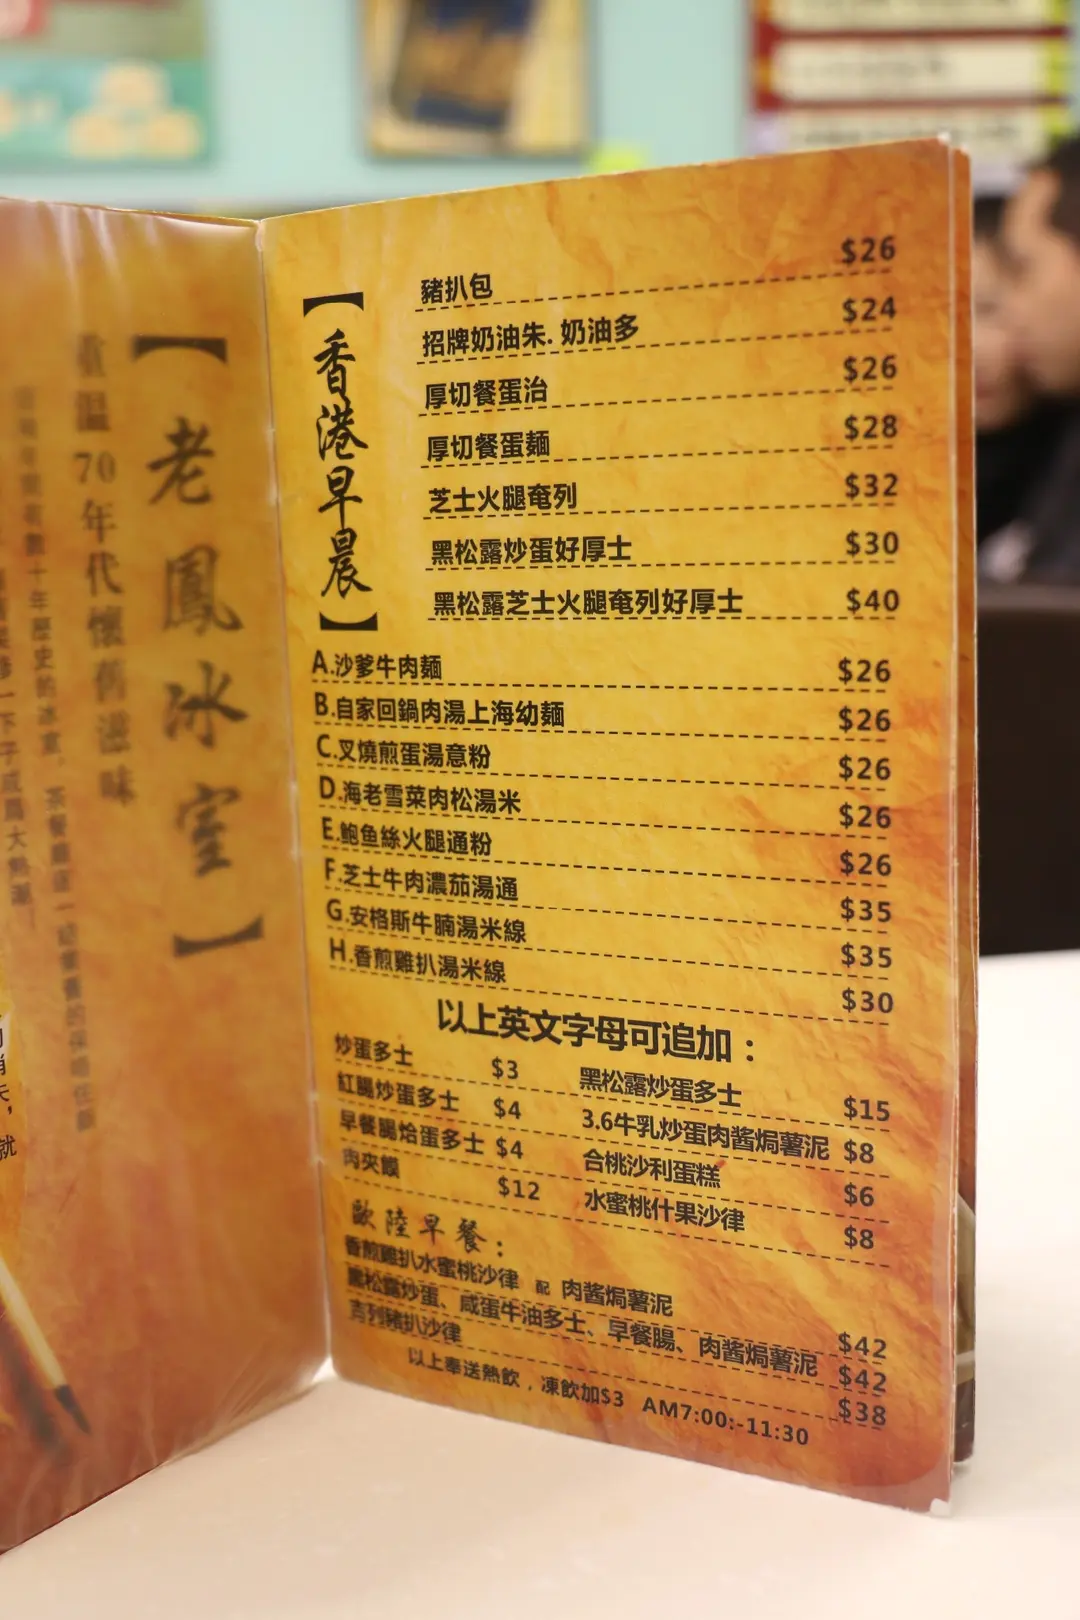 【老鳳冰室】
重温70年代懷舊滋味
就
【香港早晨】
豬扒包 $26
招牌奶油朱. 奶油多 $24
厚切餐蛋治 $26
厚切餐蛋麵 $28
芝士火腿奄列 $32
黑松露炒蛋好厚士 $30
黑松露芝士火腿奄列好厚士 $40
A.沙爹牛肉麵 $26
B.自家回鍋肉湯上海幼麵 $26
C.叉燒煎蛋湯意粉 $26
D.海老雪菜肉松湯米 $26
E.鮑鱼絲火腿通粉 $26
F.芝士牛肉濃茄湯通 $35
G.安格斯牛腩湯米線 $35
H.香煎雞扒湯米線 $30
以上英文字母可追加：
炒蛋多士 $3 黑松露炒蛋多士 $15
紅腸炒蛋多士 $4 3.6牛乳炒蛋肉酱焗薯泥 $8
早餐腸烚蛋多士 $4 合桃沙利蛋糕 $6
肉夾饃 $12 水蜜桃什果沙律 $8
歐陸早餐：
香煎雞扒水蜜桃沙律 配 肉酱焗薯泥 $42
黑松露炒蛋、咸蛋牛油多士、早餐腸、肉酱焗薯泥 $42
吉列豬扒沙律 $38
以上奉送熱飲，凍飲加$3 AM7:00:-11:30